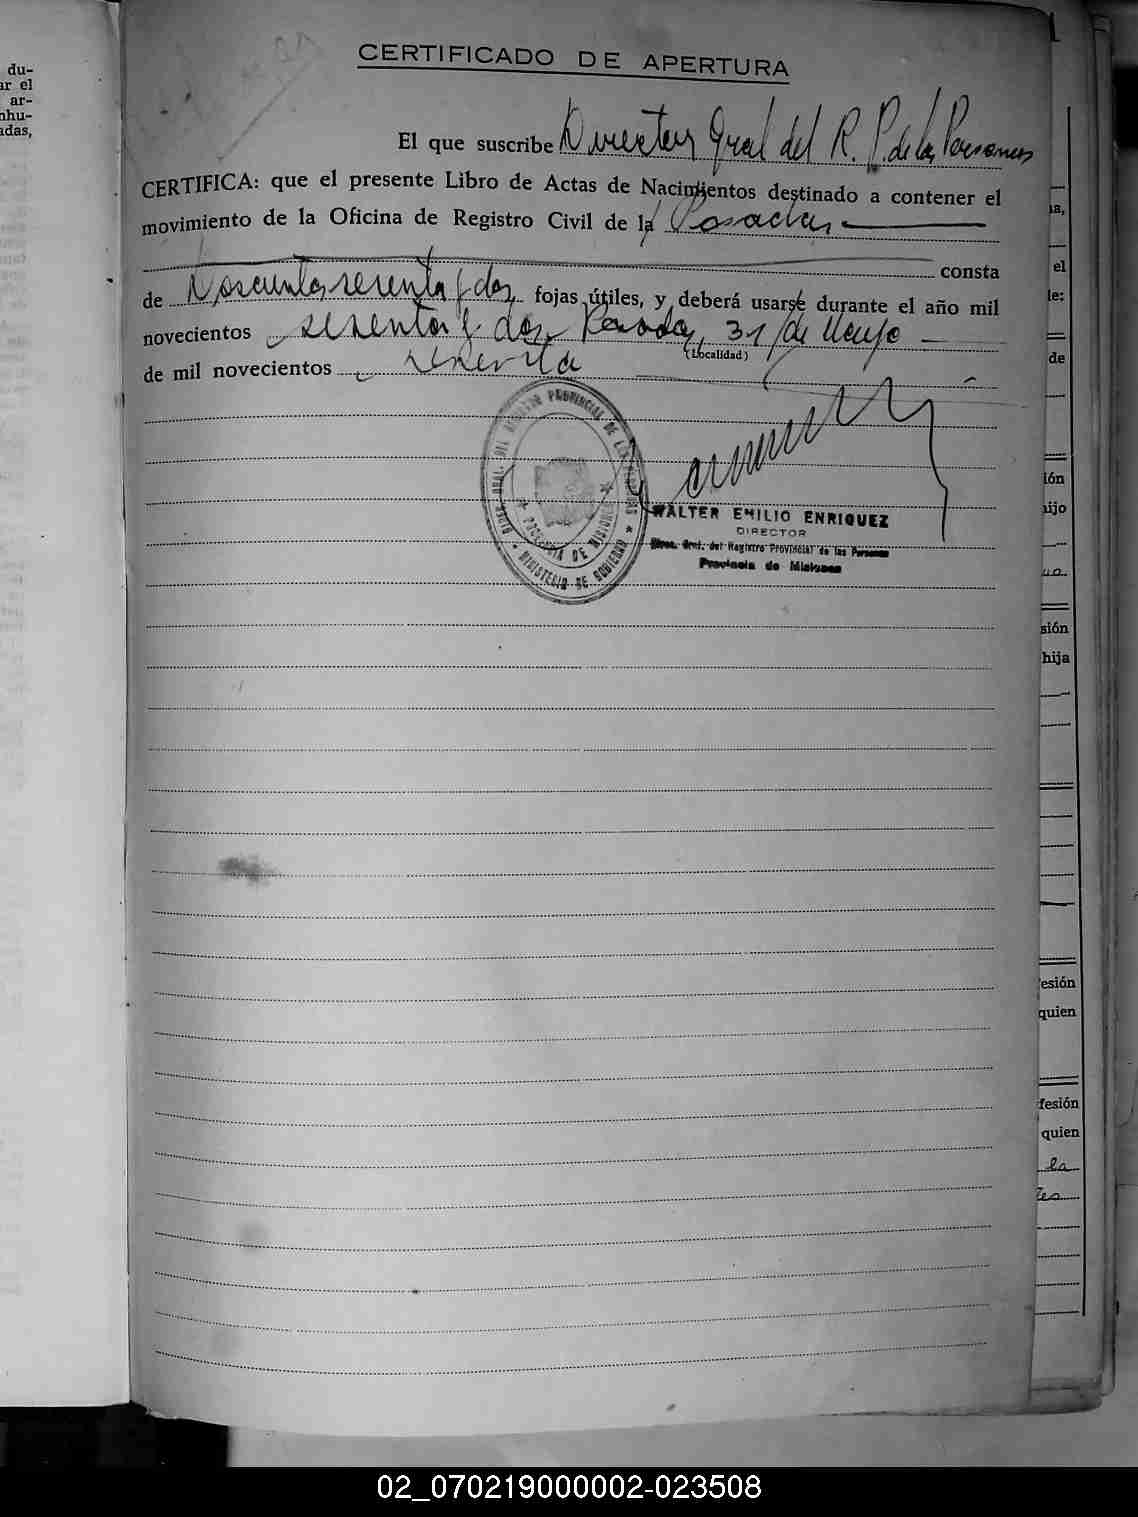 du-
ar el
ar-
nhu-
adas,
CERTIFICADO DE APERTURA
El que suscribe Director Gral del R. P. de las Personas
CERTIFICA: que el presente Libro de Actas de Nacimientos destinado a contener el
movimiento de la Oficina de Registro Civil de la Posadas
consta
de Doscientos sesenta y dos fojas útiles, y deberá usarse durante el año mil
novecientos sesenta y dos Posadas, 31 de Mayo
(Localidad)
de mil novecientos sesenta
DIREC. GRAL. DEL REGISTRO PROVINCIAL DE LAS PERSONAS
PROVINCIA DE MISIONES
MINISTERIO DE GOBIERNO
WALTER EMILIO ENRIQUEZ
DIRECTOR
Direc. Gral. del Registro Provincial de las Personas
Provincia de Misiones
1
na,
el
le:
de
ión
hijo
sión
hija
fesión
quien
fesión
quien
la
02_070219000002-023508